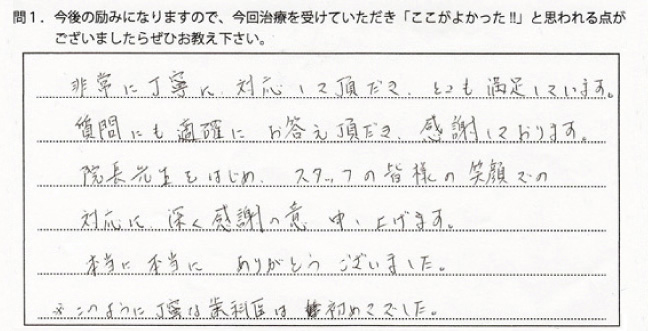 問1．今後の励みになりますので、今回治療を受けていただき「ここがよかった!!」と思われる点が
ございましたらぜひお教え下さい。
非常に丁寧に 対応して頂だき、とても満足しています。
質問にも適確に お答え頂だき、感謝しております。
院長先生をはじめ、スタッフの皆様の笑顔での
対応に、深く感謝の意 申し上げます。
本当に本当に ありがとうございました。
※このように丁寧な歯科医は 初めてでした。